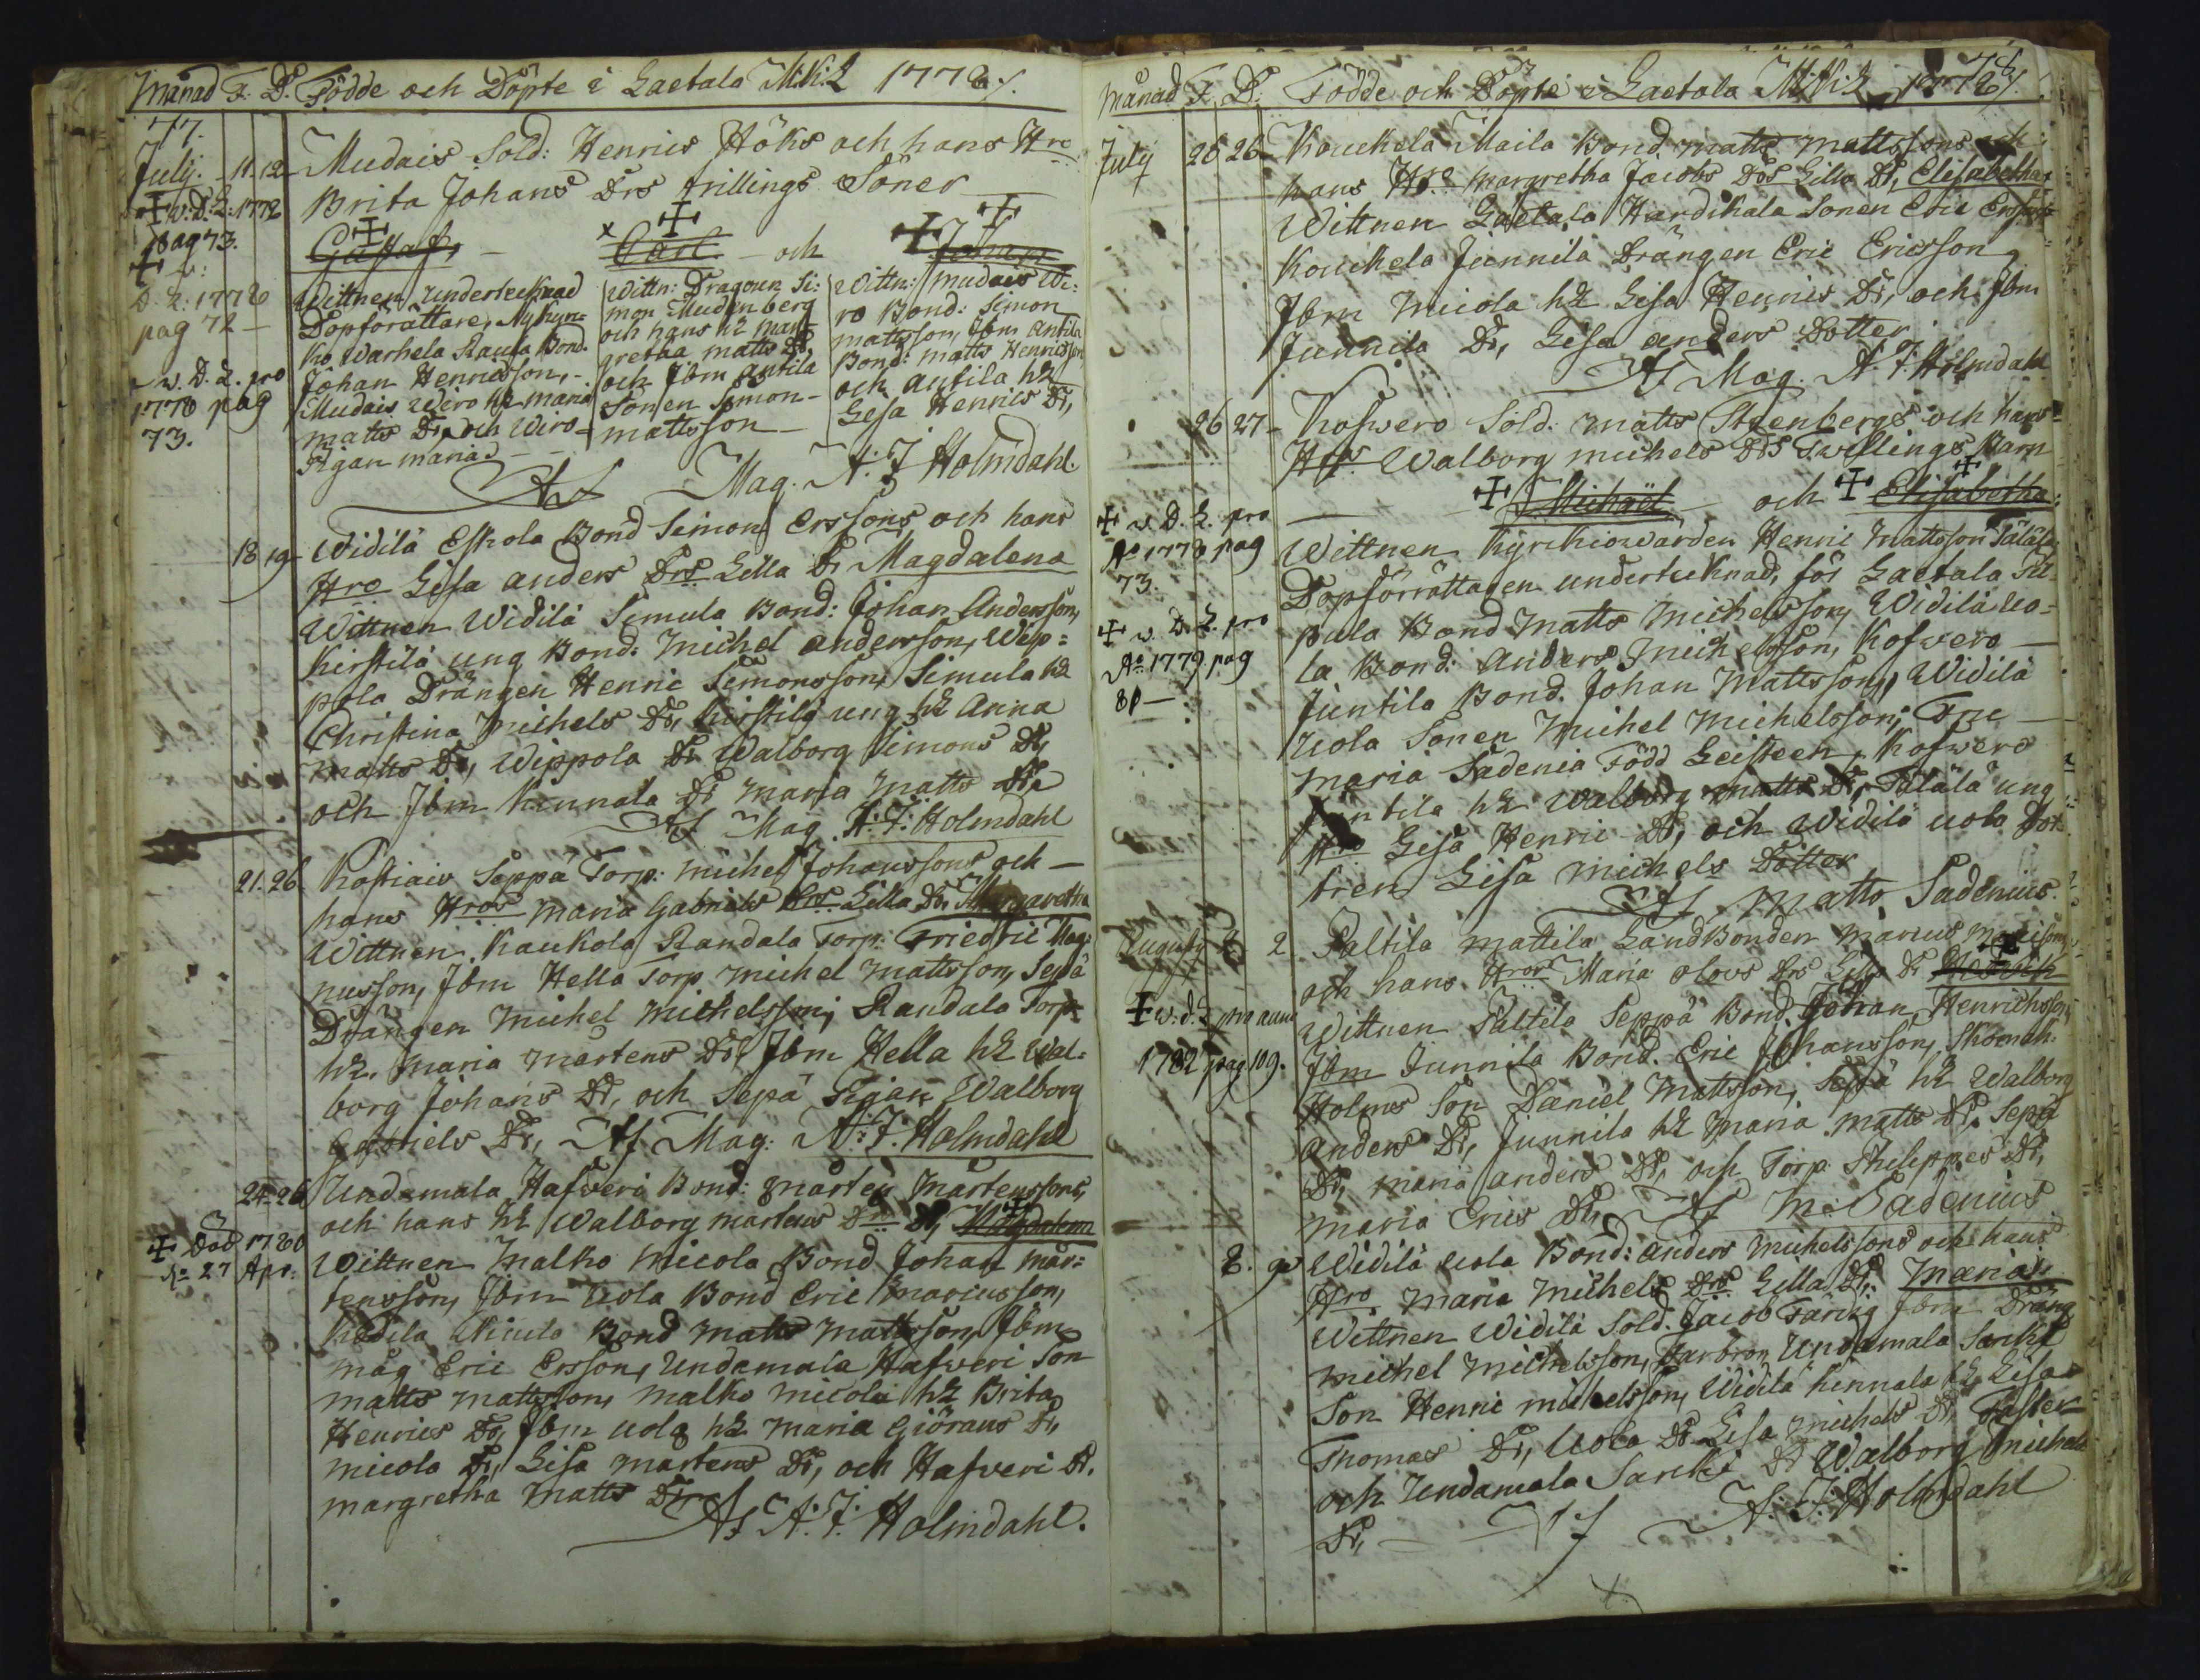 Månad F. D. Födde och Döpte i Laetala M:K:L 1778/.
77.
July. 11. 12 Mudais Sold: Henrics Höks och hans Hro
Brita Johans Drs trillings Söner
w. D. L: 1778
pag 73.
Gustaf, - Carl - och Johan
D. L: 1778
pag 72 -
w. D. L. pro
1778 pag
73.
Wittnen undertecknad
Dopförättare, Nykyr=
ko Warhela Raula Bond.
Johan Henricsson,
Mudais Wiro h2 maria
matts Dr, och Wiro=
Pigan maria
Wittn: Dragoun Si:
mon Mudenberg
och hans h2 mar=
gretha matts Dr,
och Jbm Antila
Sonen Simon
mattsson
Wittn: mudais Wi:
ro Bond: Simon
mattsson, Jbm Antila
Bond: matts Henricsson
och Antila h2
Lisa Henrics Dr,
Af Mag. A: J Holmdahl.
18 19 Widilä Eskola Bond Simon Erssons och hans
Hro Lisa anders Drs Lilla Dr Magdalena
Wittnen Widilä Simula Bond: Johan Andersson,
Kirstilä ung Bond: Michel andersson, Wip=
pola Drängen Henric Simonsson, Simula h2
Christina Michels Dr, Kirstilä ung h2 Anna
matts Dr, Wippola Dr Walborg Simons Dr,
och Jbm Kinnala Dr maria matts Dr.
Af Mag. A: J: Holmdahl
21. 26 Kostiais Seppä Torp: michel Johanssons och
hans Hros maria Gabriels Drs Lilla Dr, Margaretha
Wittnen Kaukola Randala Torp: Friedric Mag=
nusson, Jbm Hella Torp. michel mattsson, Sepä
Drängen Michel Michelsson; Randala Torp
h2. Maria Mårtens Dr, Jbm Hella h2 Wal=
borg Johans Dr, och Sepä Pigan Walborg
Gabriels Dr, Af Mag: A: J: Holmdahl
24 26 Undamala Hafweri Bond: Mårten Mårtenssons,
och hans h2 Walborg mårtens Drs Dr, Magdalena
Död 1780
d. 27 Apr:
Wittnen Malko Micola Bond Johan Mår=
tensson, Jbm Uola Bond Eric Mariusson,
Kodila Micula Bond Matts Mattsson, Jbm
måg Eric Ersson, Undamala Hafweri Son
matts mattsson, malko micola h2 Brita
Henrics Dr, Jbm uola h2 maria Giörans Dr,
micola Dr, Lisa mårtens Dr, och Hafweri Dr.
margretha Matts Dr
Af A: J: Holmdahl.
Månad F. D. Födde och Döpte i Laetala M:K:L 1778/.
July 25 26 Kouchela Maila Bond. matts mattssons och
hans Hro margretha Jacobs Drs Lilla Dr, Elisabetha
Wittnen Laetala Hardikala Sonen Eric Ersson
Kouchela Junnila Drängen Eric Ericsson
Jbm Micola h2 Lisa Henrics Dr, och Jbm
Junnila Dr, Lisa anders Dotter
Af Mag. A: J: Holmdahl
26 27 Kofwero Sold. matts Steenbergs och hans
Hro Walborg michels Drs Twillings Barn
Michaël och Elisabetha
w. D. L. pro
Ao 1778 pag
73.
w. D. L. pro
Ao 1779 pag
81 -
Wittnen Kyrckiowärden Henric Mattsson Tälälä
Dopförrättaren undertecknad, för Laetala Pil=
pula Bond Matts Michelsson, Widilä Uo=
la Bond: Anders Michelsson, Kofwero
Juntila Bond. Johan Mattsson, Widilä
Uola Sonen Michel Michelsson; Frue
maria Sadenia Född Leisteen, Kofwero
Juntila h2 Walborg matts Dr, Tälälä ung
Hro Lisa Henric Dr, och Widilä uola Dot=
tren Lisa Michels Dotter
Af Matts Sadenius.
August 2 Paltila mattila LandBonden Marcus
och hans Hros Maria olovs Drs Lilla Dr Hedvich
w. d. L pro anno
1782 pag 109.
Wittnen Paltila Seppä Bond. Johan Henrichsson,
Jbm Junnila Bond. Eric Johansson, Skomak:
Holms Son Daniel Mattsson, Seppä h2 Walborg
anders Dr, Junnila h2 maria matts Dr. Sepä
Dr, maria anders Dr, och Torp. Philippses Dr,
maria Erics Dr, Af M: Sadenius
8. 9 Widilä uola Bond: anders Michelssons och hans
Hro Maria Michels Drs Lilla Dr: Maria
Wittnen Widilä Sold. Jacob Färing Jbm Dräng
michel michelsson, Farbron Undamala Sarcki
Son Henric michelsson, Widilä hinnala h2 Lisa
Thomas Dr, Uola Dr Lisa michels Dr, Faster
och Undamala Sarcki Dr Walborg Michels
Dr, Af A. J: Holmdahl